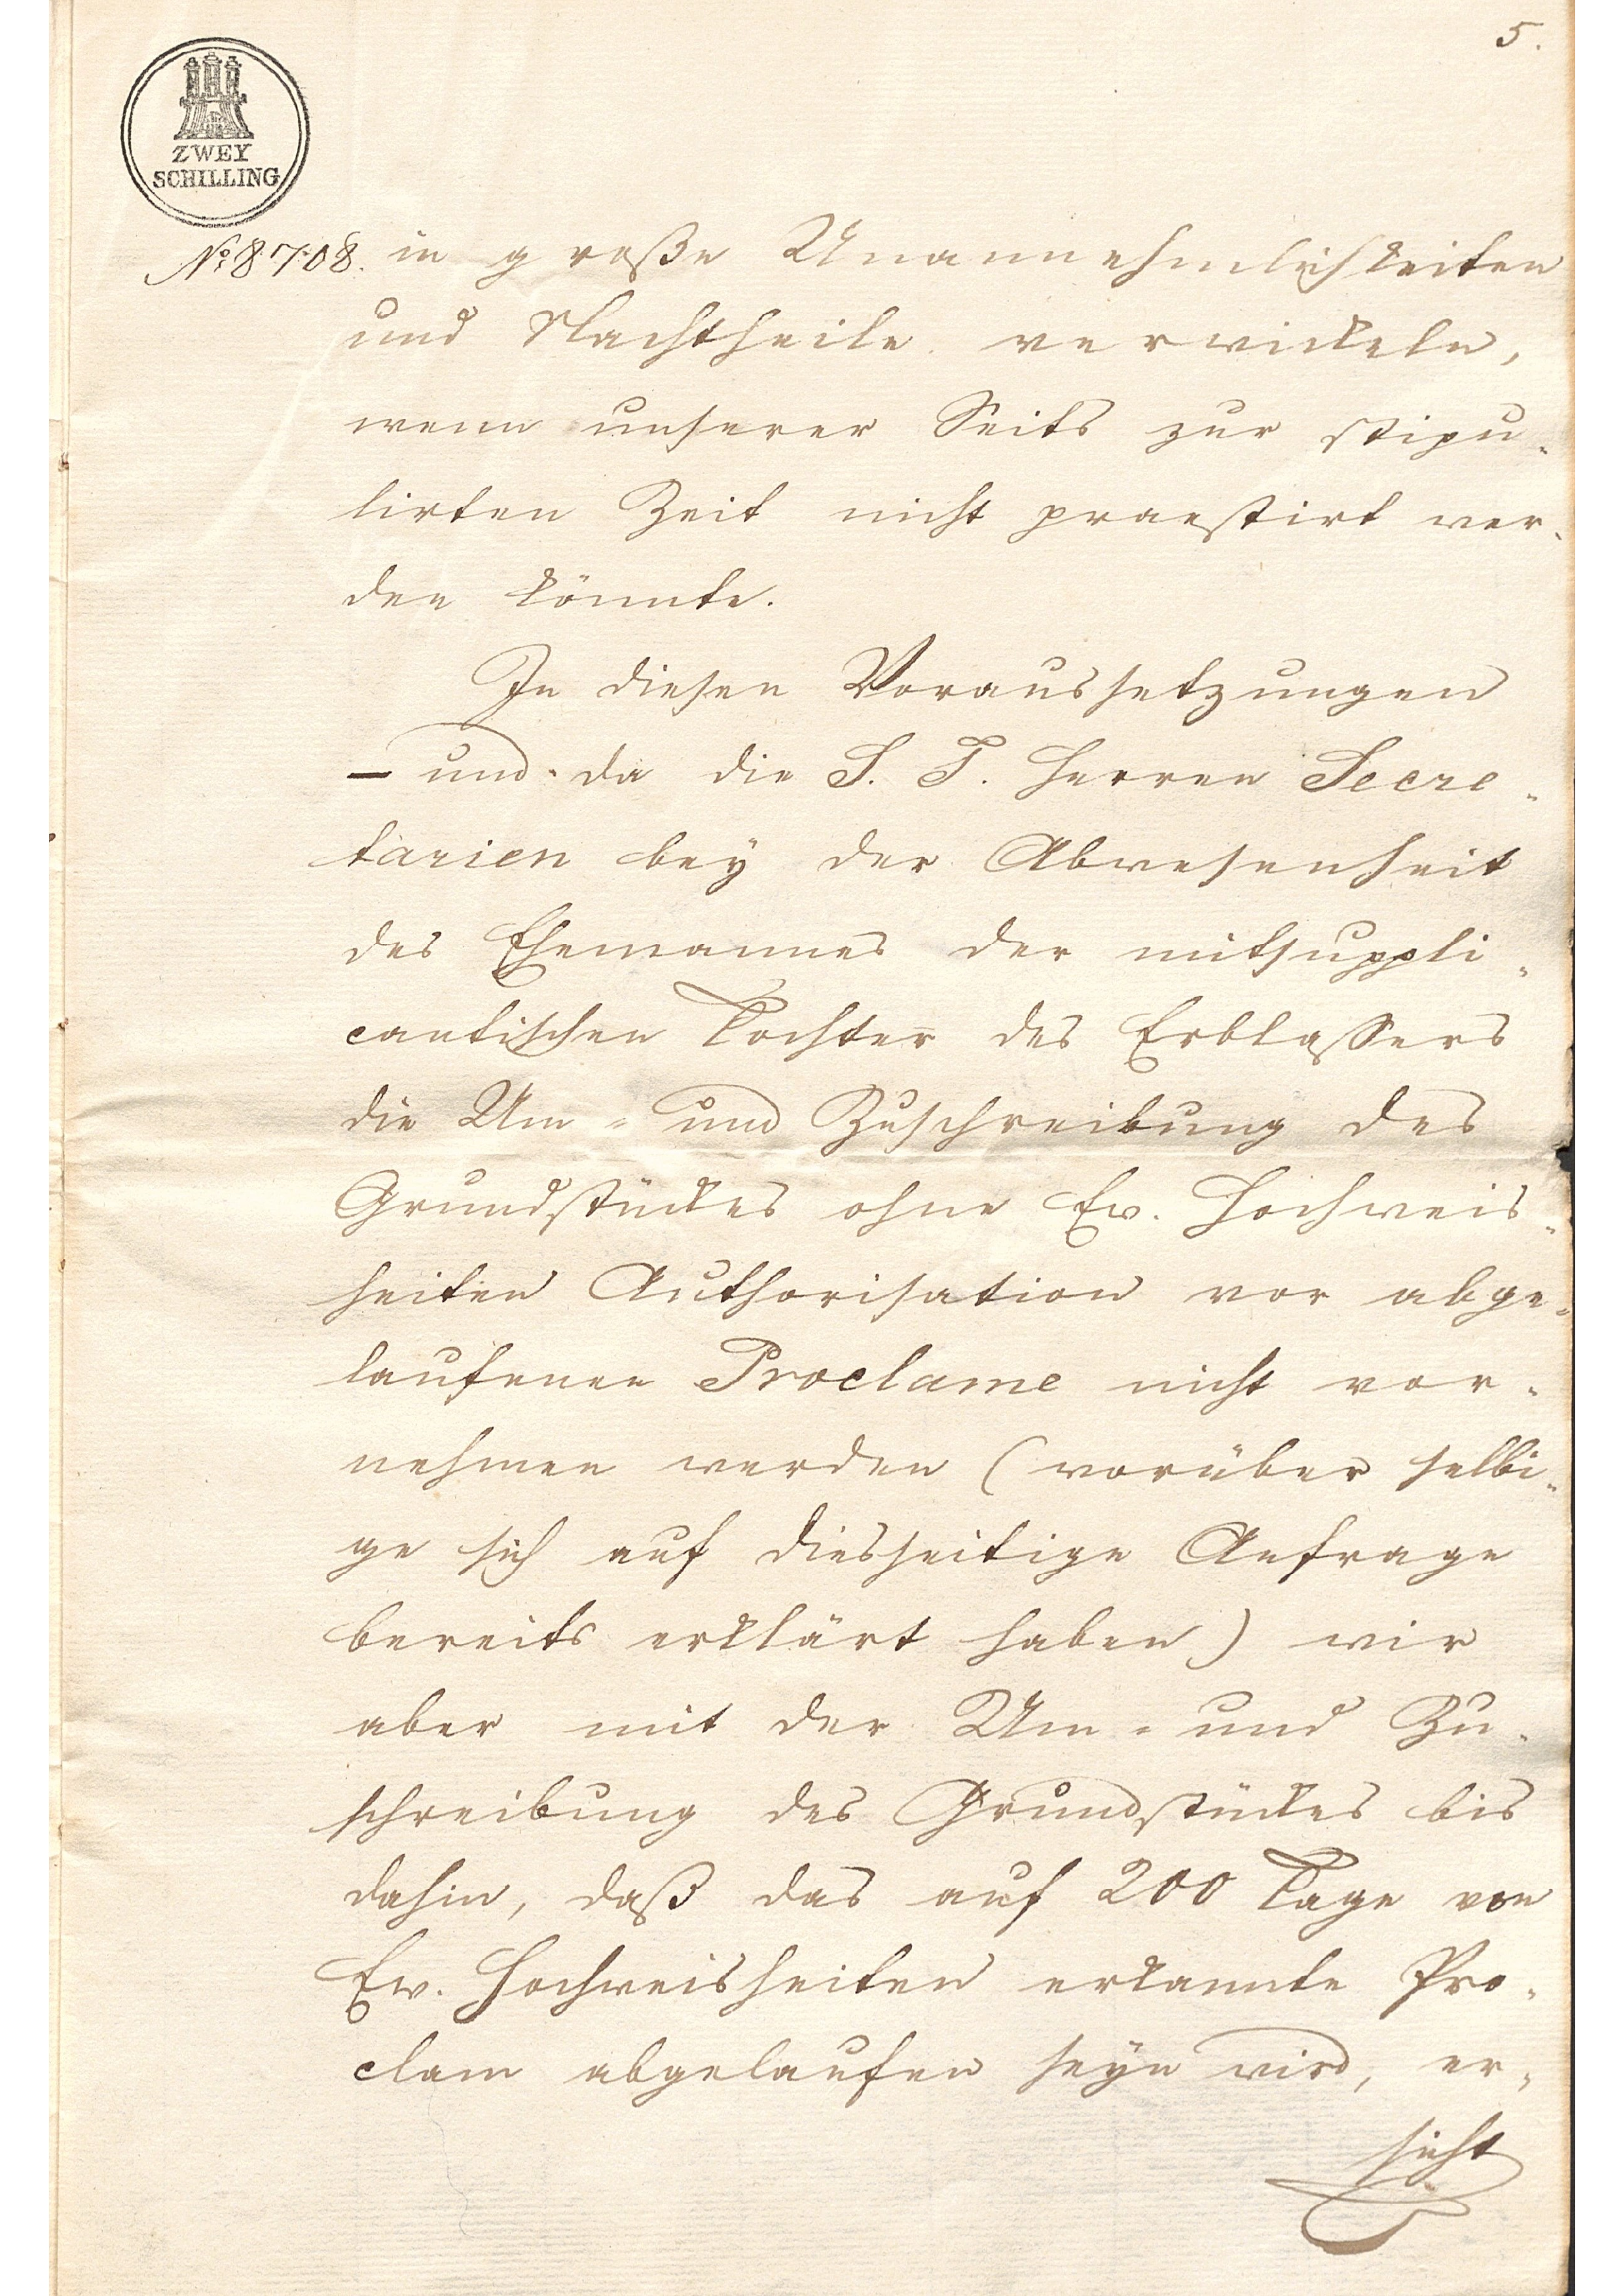 5.
ZWEY
SCHILLING
No: 8708.
in große Unannehmlichkeiten
und Nachtheile verwickeln,
wenn unserer Seits zur stipu-
lirten Zeit nicht praestirt wer-
den könnte.
In diesen Voraussetzungen
– und da die S. T. Herren Secre-
tarien bey der Abwesenheit
des Ehemannes der mitsuppli-
cantischen Tochter des Erblassers
die Um- und Zuschreibung des
Grundstückes ohne Ew. Hochweis-
heiten Authorisation vor abge-
laufenen Proclame nicht vor-
nehmen werden (worüber selbi-
ge sich auf diesseitige Anfrage
bereits erklärt haben) wir
aber mit der Um- und Zu-
schreibung des Grundstückes bis
dahin, daß das auf 200 Tage von
Ew. Hochweisheiten erkannte Pro-
clam abgelaufen seyn wird, er-
sucht